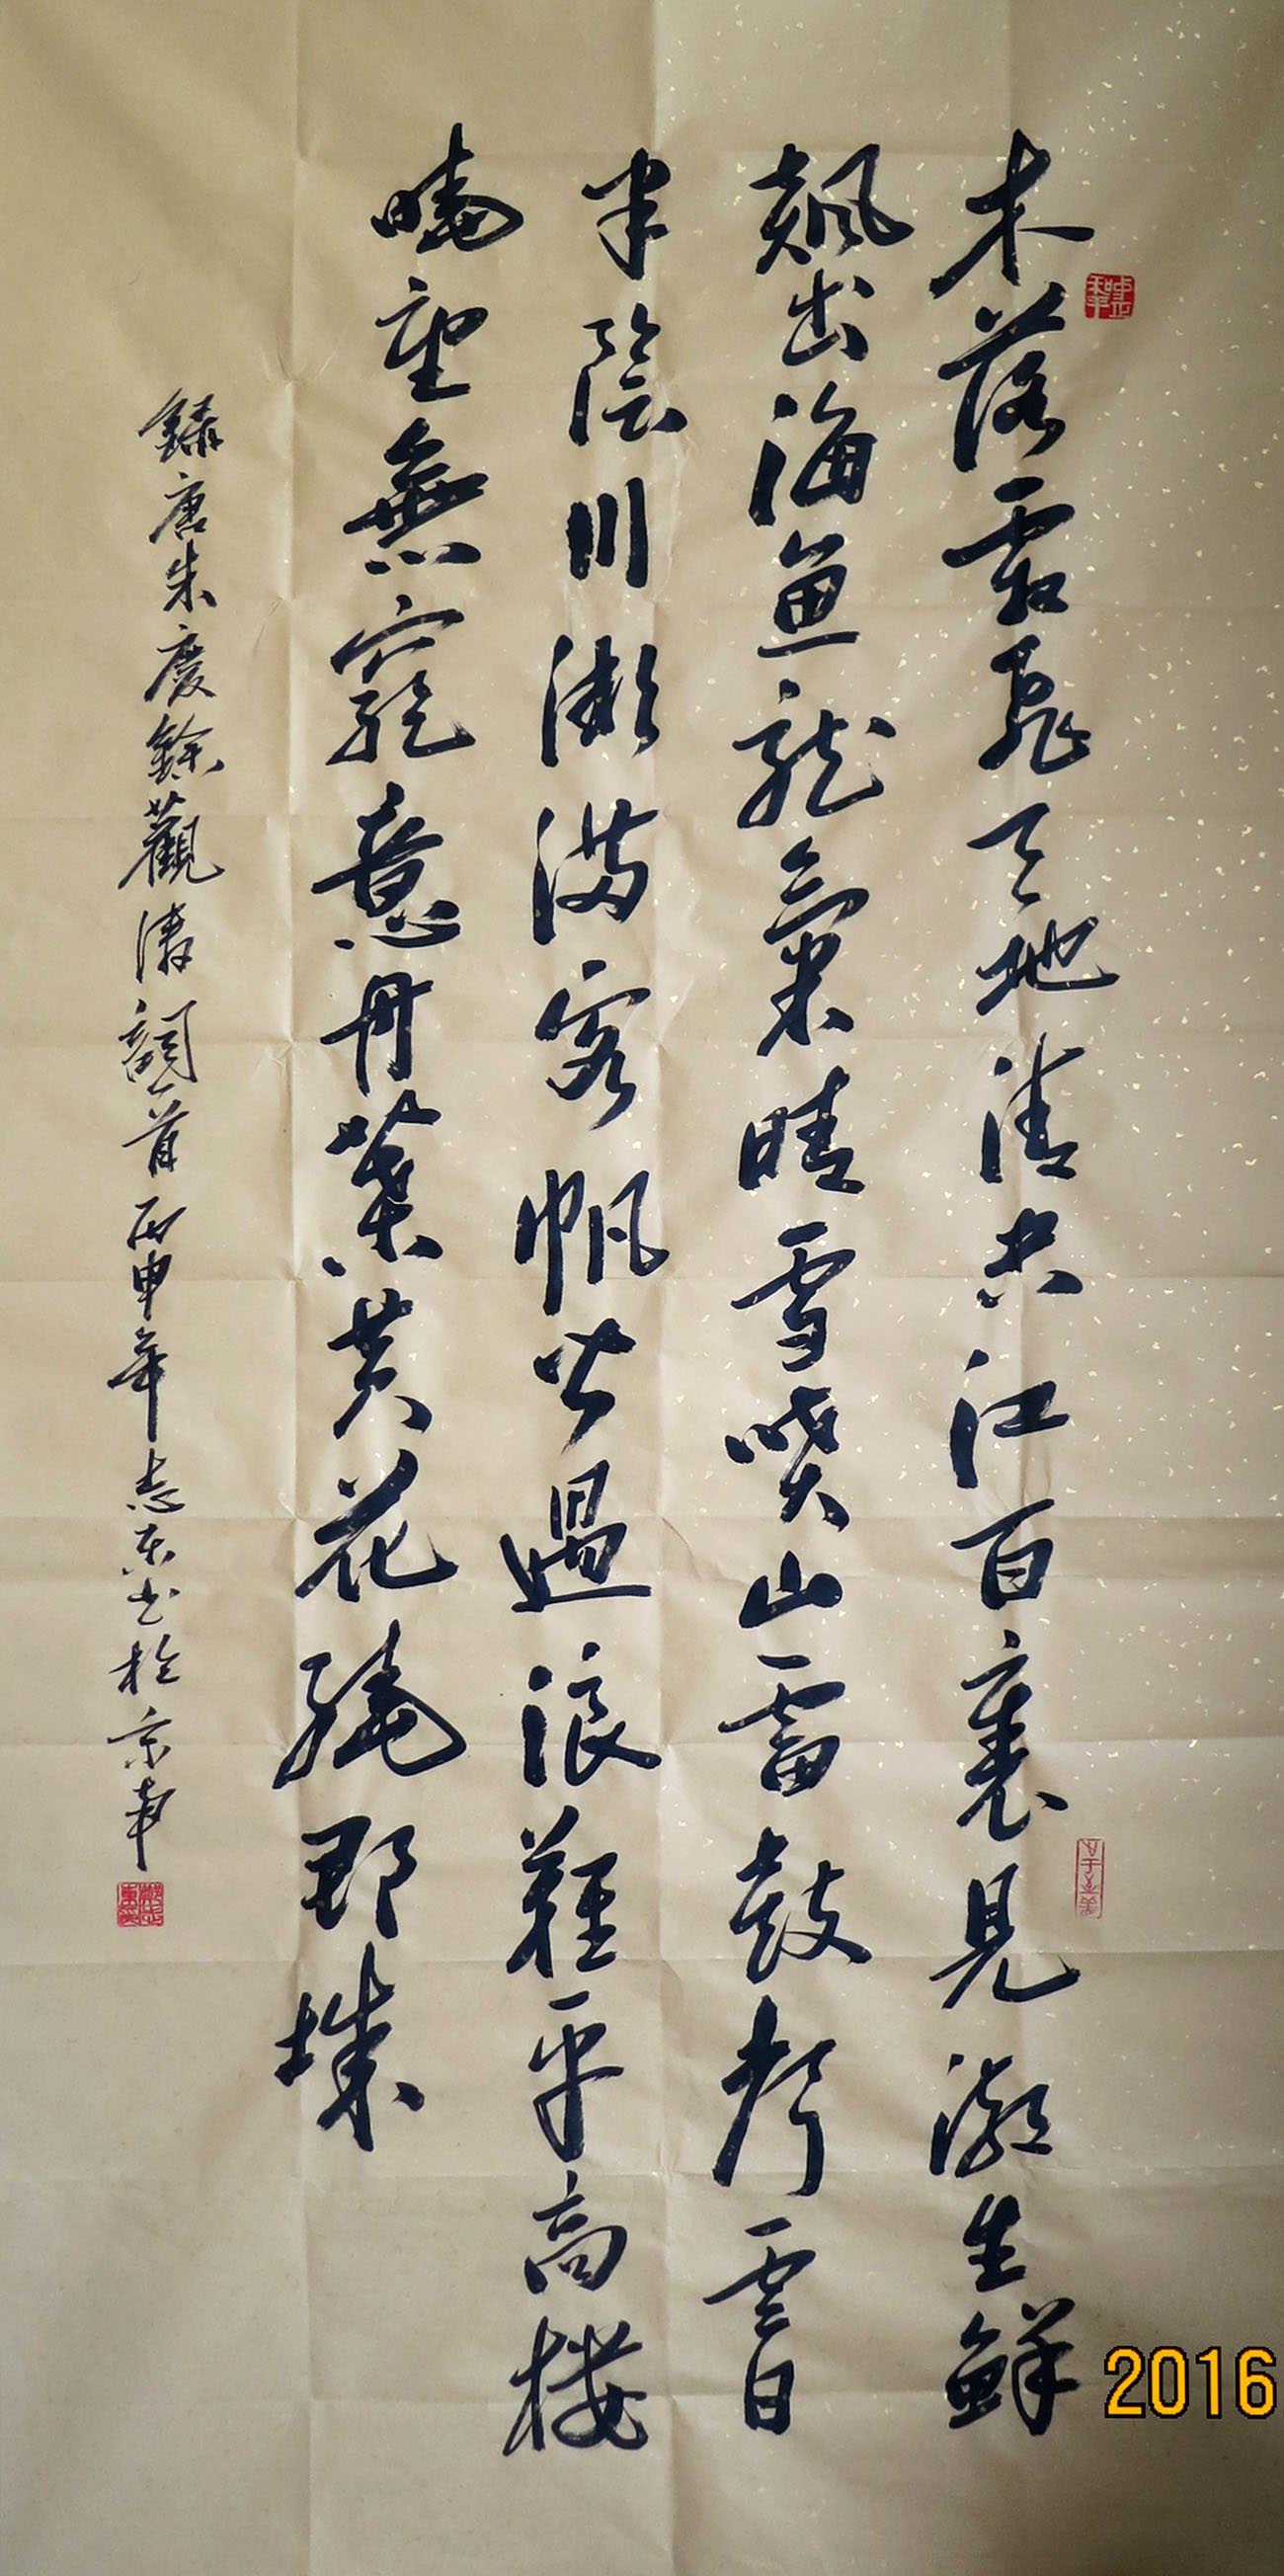 木落霜飛天地清空江百裏見潮生鮮
飆出海魚龍氣晴雪噴山雷鼓聲雲日
半陰川漸滿客帆皆過浪難平高樓
曉望無窮意丹葉黃花繞郡城
錄唐朱慶餘觀濤詞一首丙申年志東書於京華
2016